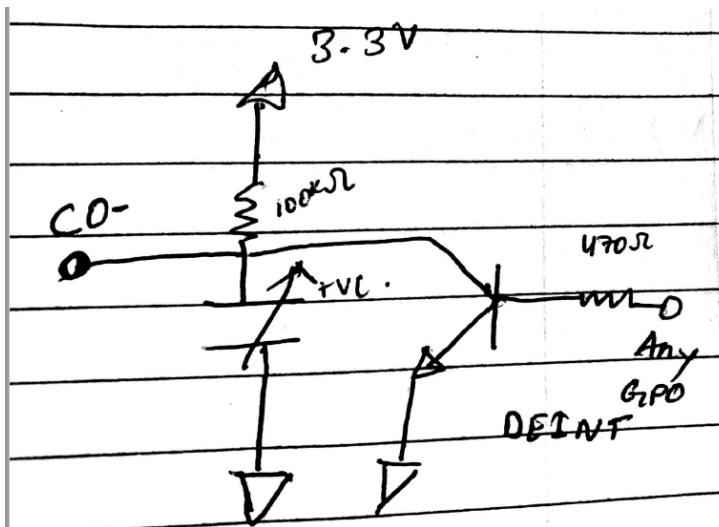 3.3V
100KΩ
CO-
470Ω
+VC.
Any
GPO
DEINT